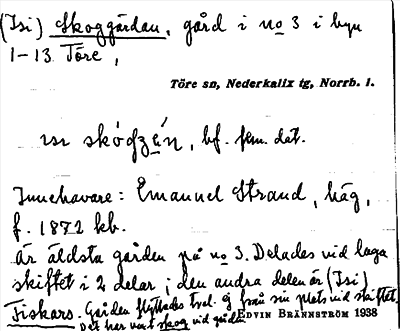 (Isi) Skoggården, gård i no 3 i byn
1-13 Töre,
Töre sn, Nederkalix tg, Norrb. l.
ısı skógzẹ́n, bf. fem. dat.
Innehavare: Emanuel Strand, häg,
f. 1872 kb.
Är äldsta gården på no 3. Delades vid laga
skiftet i 2 delar; den andra delen är (Isi)
Fiskars. Gården flyttades tvel. ej från sin plats vid skiftet.
Det har varit skog vid gården.
EDVIN BRÄNNSTRÖM 1938